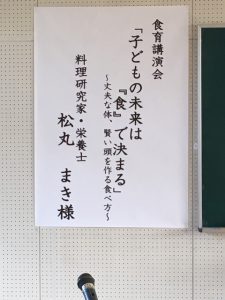 食育講演会
「子どもの未来は
『食』で決まる」
～丈夫な体、賢い頭を作る食べ方～
料理研究家・栄養士
松丸　まき様